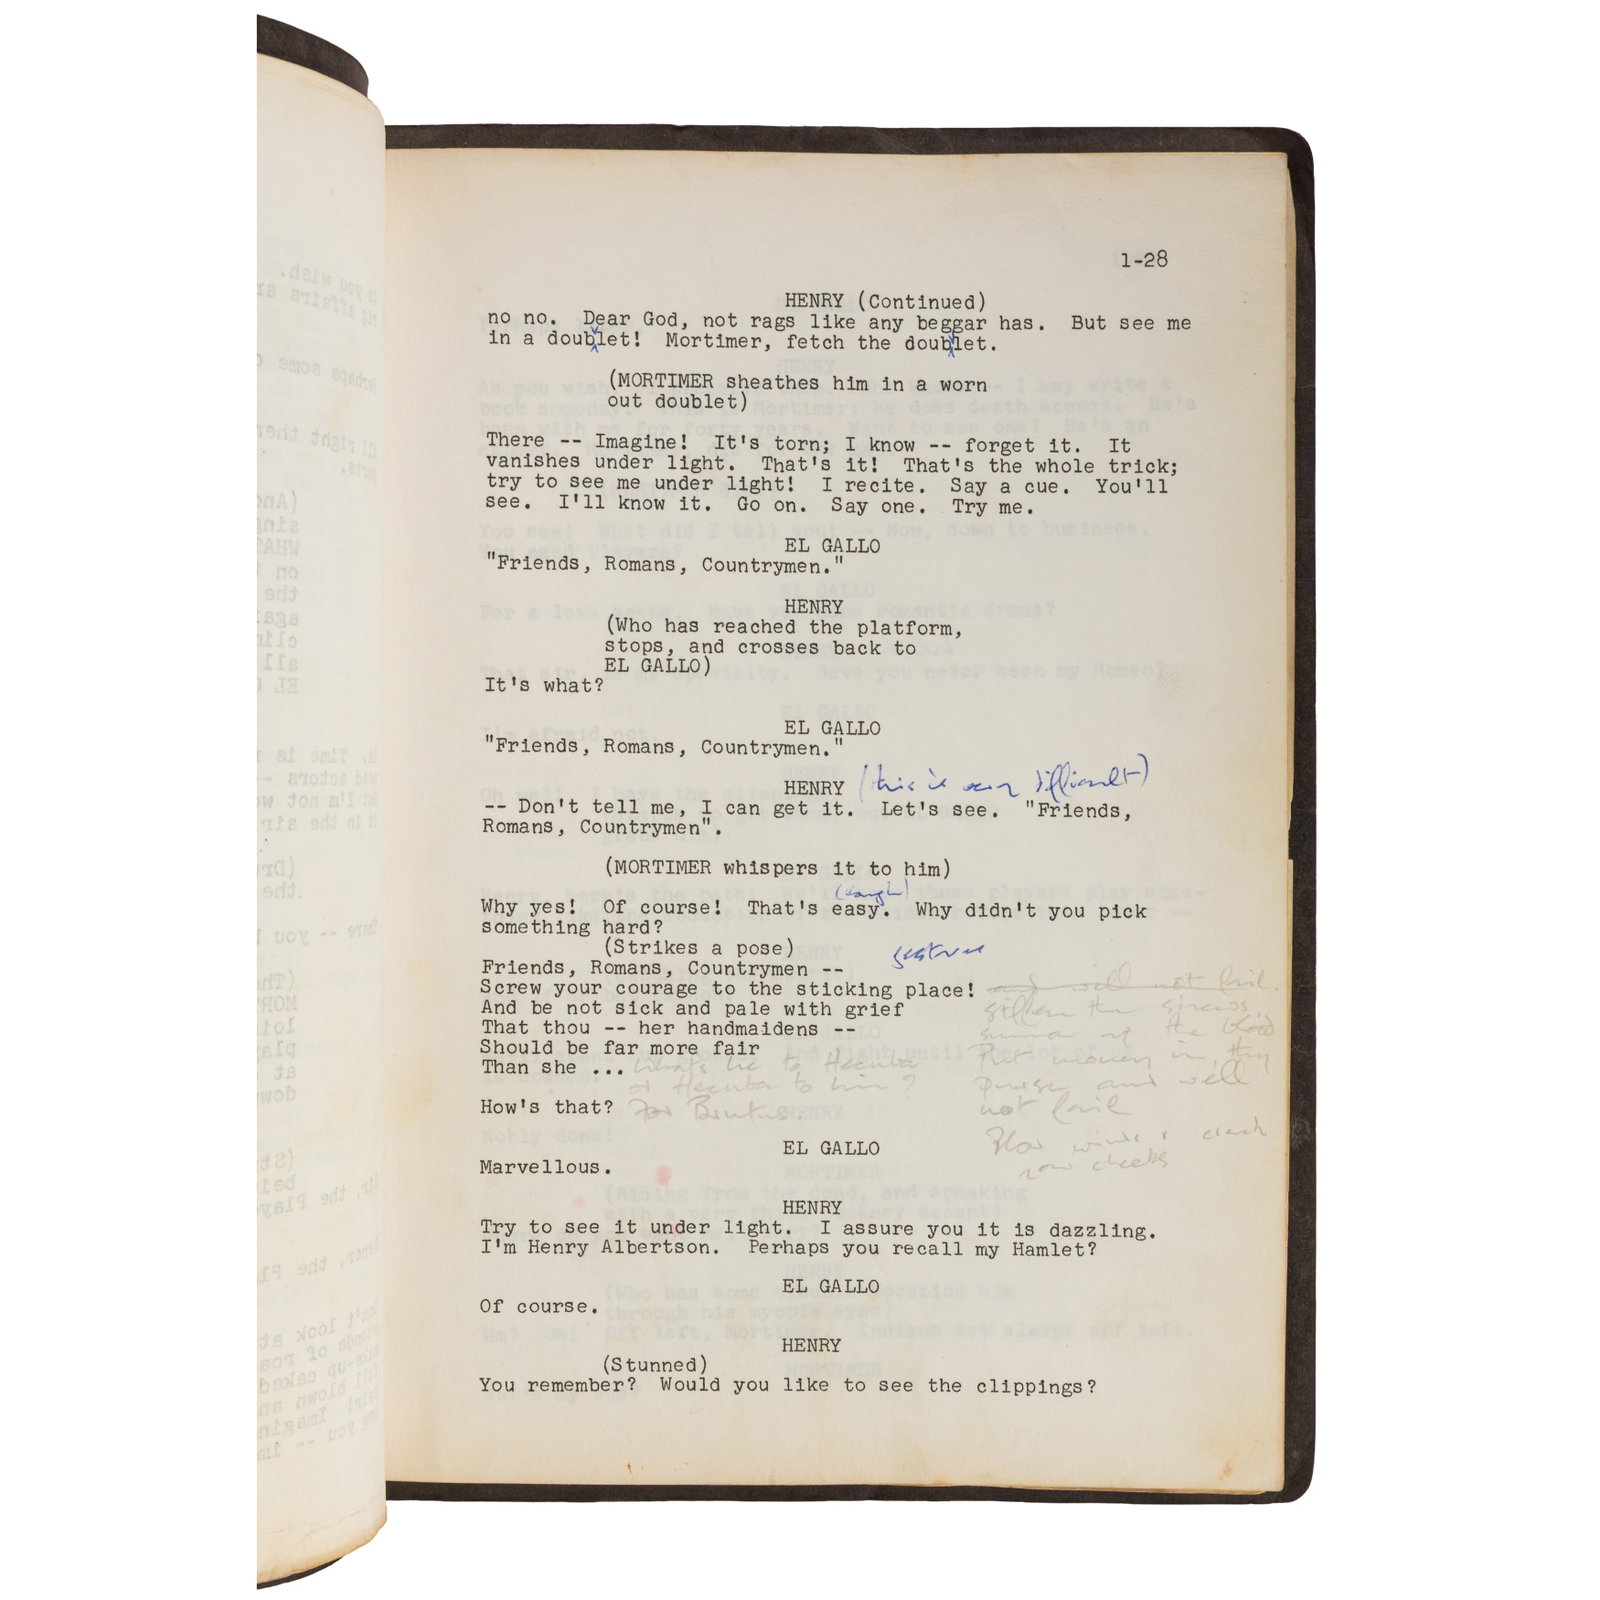 1-28
HENRY (Continued)
no no. Dear God, not rags like any beggar has. But see me
in a doublet! Mortimer, fetch the doublet.
(MORTIMER sheathes him in a worn
out doublet)
There -- Imagine! It's torn; I know -- forget it. It
vanishes under light. That's it! That's the whole trick;
try to see me under light! I recite. Say a cue. You'll
see. I'll know it. Go on. Say one. Try me.
EL GALLO
"Friends, Romans, Countrymen."
HENRY
(Who has reached the platform,
stops, and crosses back to
EL GALLO)
It's what?
EL GALLO
"Friends, Romans, Countrymen."
HENRY (this is very difficult)
-- Don't tell me, I can get it. Let's see. "Friends,
Romans, Countrymen".
(MORTIMER whispers it to him)
(laugh)
Why yes! Of course! That's easy. Why didn't you pick
something hard?
(Strikes a pose) gesture
Friends, Romans, Countrymen --
Screw your courage to the sticking place! and will not fail.
And be not sick and pale with grief
stiffen the sinews,
That thou -- her handmaidens --
summon up the blood
Should be far more fair
Put money in thy
Than she ... What's he to Hecuba
or Hecuba to him? purse and we'll
How's that? For Brutus. not fail
Blow winds & crack
your cheeks
EL GALLO
Marvellous.
HENRY
Try to see it under light. I assure you it is dazzling.
I'm Henry Albertson. Perhaps you recall my Hamlet?
EL GALLO
Of course.
HENRY
(Stunned)
You remember? Would you like to see the clippings?